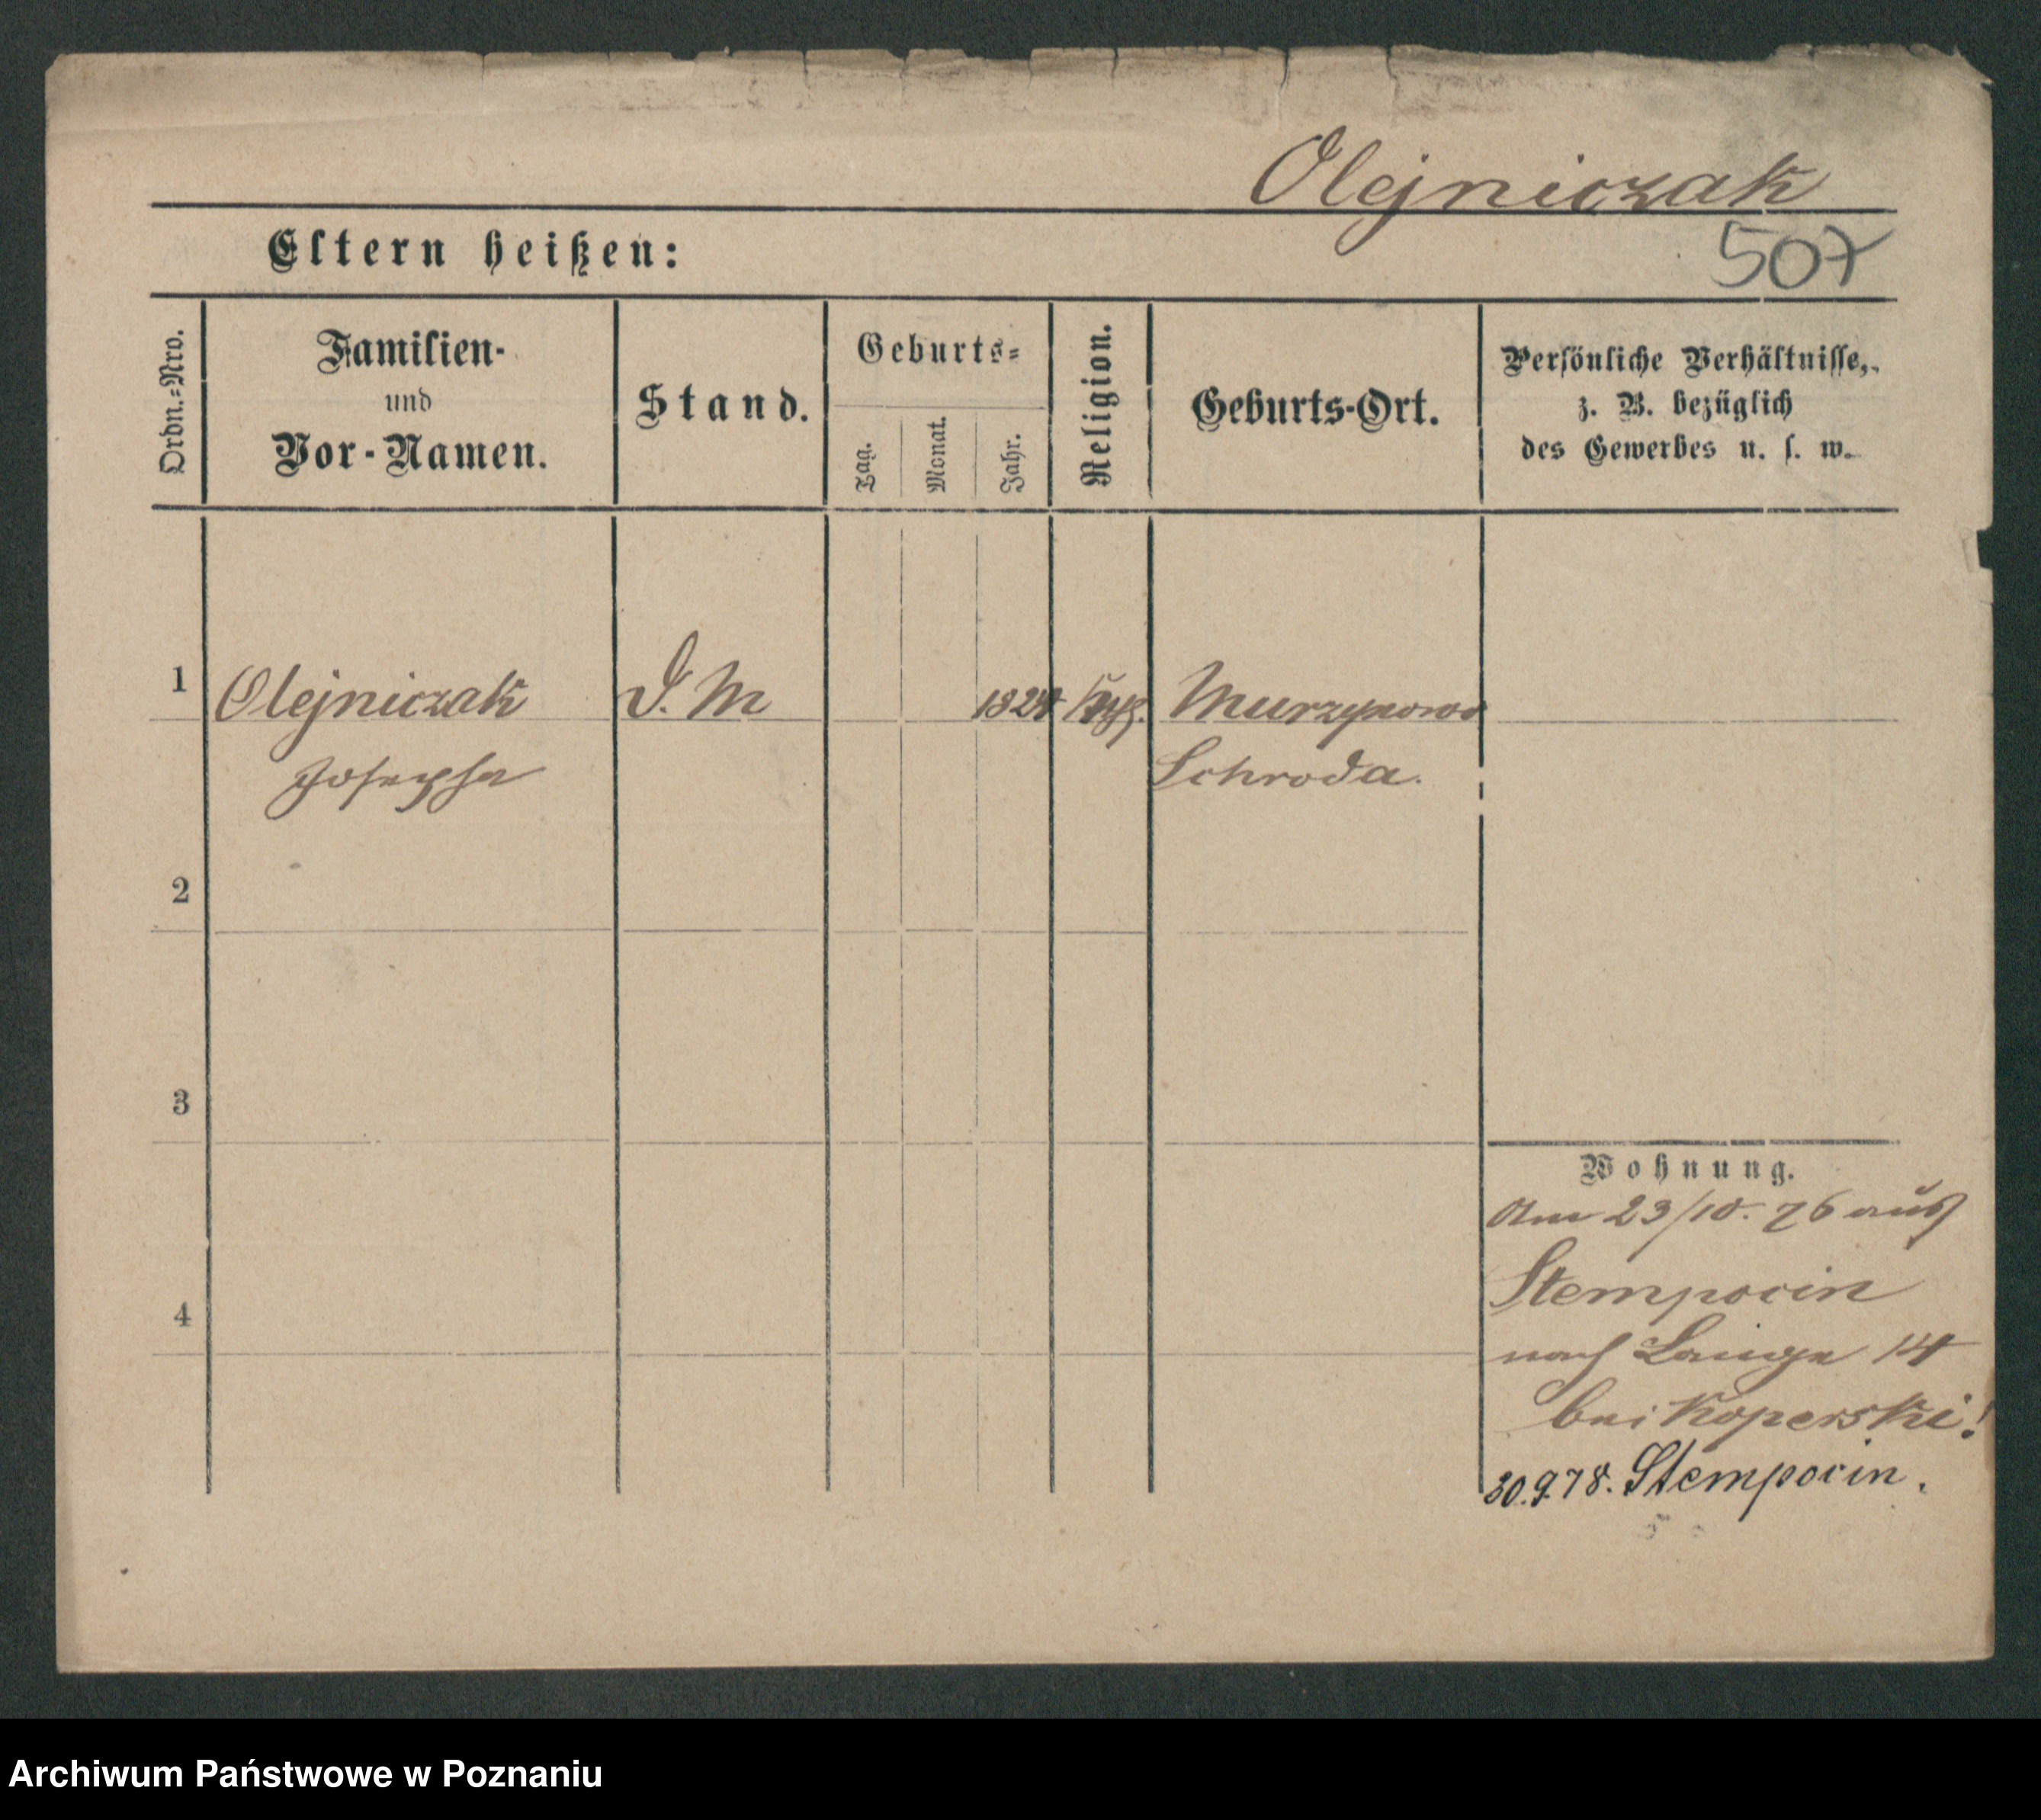 Olejniczak
507
Eltern heißen:
Ordn.-Nro.
Familien-
und
Vor-Namen.
Stand.
Geburts-
Tag.
Monat.
Jahr.
Religion.
Geburts-Ort.
Persönliche Verhältnisse,
z. B. bezüglich
des Gewerbes u. s. w.
1 Olejniczak D. M 1824 Murzynowo
Josepha Schroda.
2
3
4
Wohnung.
Am 23/10. 76 aus
Stempocin
nach Lange 14
bei Koperski!
30.9.78. Stempocin.
Archiwum Państwowe w Poznaniu